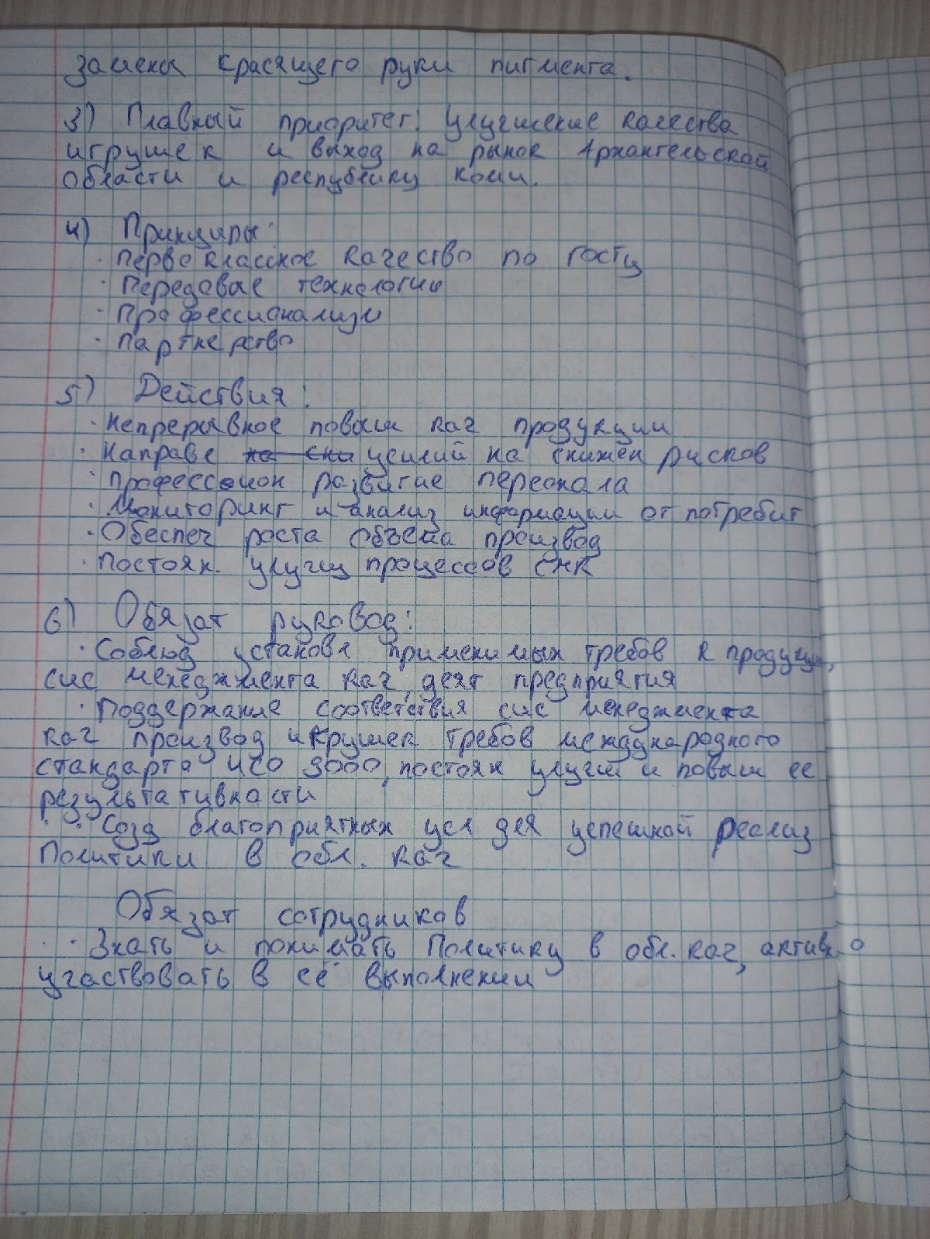 замена красящего руки пигмента.
3) Главный приоритет: улучшение качества
игрушек и выход на рынок Архангельской
области и республику Коми.
4) Принципы:
· Первоклассное качество по госту
· Передовые технологии
· Профессионализм
· Партнерство
5) Действия:
· Непрерывное повыш кач продукции
· Направе усилий на снижен рисков
· Професссион развитие персонала
· Мониторинг и анализ информации от потребит
· Обеспеч роста объема производ
· Постоян. улучш процессов СМК
6) Обязат руковод:
· Соблюд установл применимых требов к продукции,
сис менеджмента кач, деят предприятия
· Поддержание соответствия сис менеджмента
кач производ игрушек требов международного
стандарта ИСО 9000, постоян улучш и повыш ее
результативности
· Созд благоприятных усл для успешной реализ
Политики в обл. кач
Обязат сотрудников
· Знать и понимать Политику в обл. кач, активно
участвовать в её выполнении